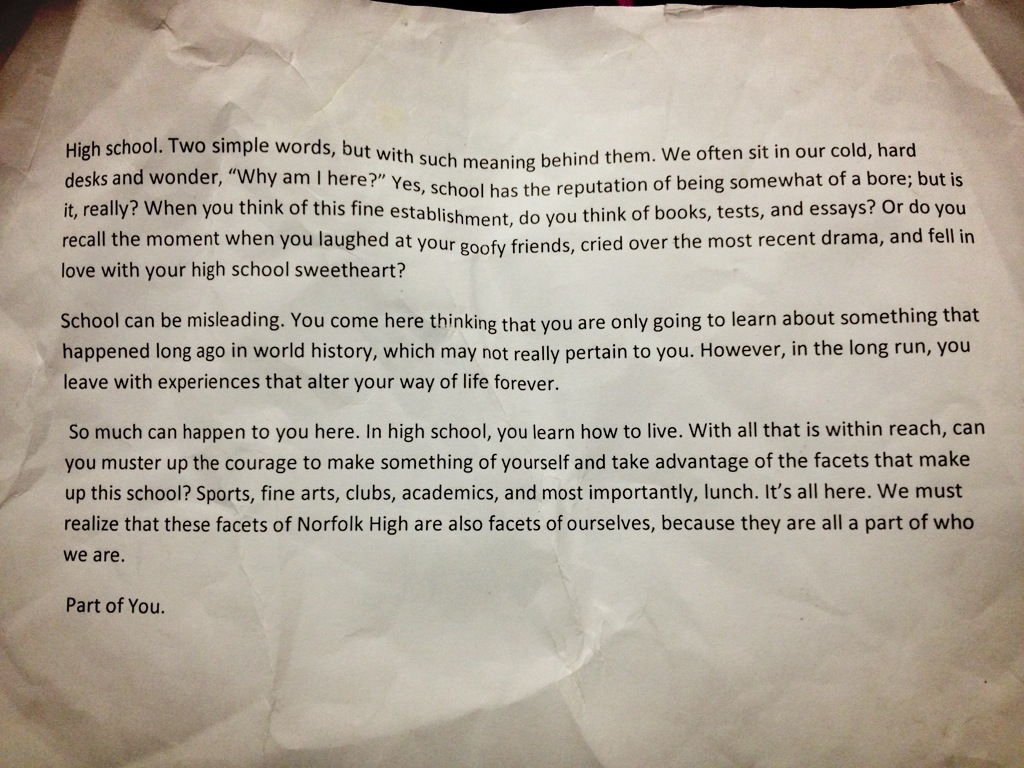 High school. Two simple words, but with such meaning behind them. We often sit in our cold, hard
desks and wonder, “Why am I here?” Yes, school has the reputation of being somewhat of a bore; but is
it, really? When you think of this fine establishment, do you think of books, tests, and essays? Or do you
recall the moment when you laughed at your goofy friends, cried over the most recent drama, and fell in
love with your high school sweetheart?
School can be misleading. You come here thinking that you are only going to learn about something that
happened long ago in world history, which may not really pertain to you. However, in the long run, you
leave with experiences that alter your way of life forever.
So much can happen to you here. In high school, you learn how to live. With all that is within reach, can
you muster up the courage to make something of yourself and take advantage of the facets that make
up this school? Sports, fine arts, clubs, academics, and most importantly, lunch. It’s all here. We must
realize that these facets of Norfolk High are also facets of ourselves, because they are all a part of who
we are.
Part of You.